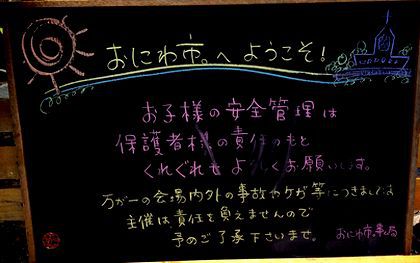 おにわ市。へ ようこそ!
お子様の安全管理は
保護者様の責任のもと
くれぐれも よろしくお願いします。
万が一の会場内外の事故やケガ等につきましては
主催は責任を負えませんので
予めご了承下さいませ。
おにわ市。事ム局